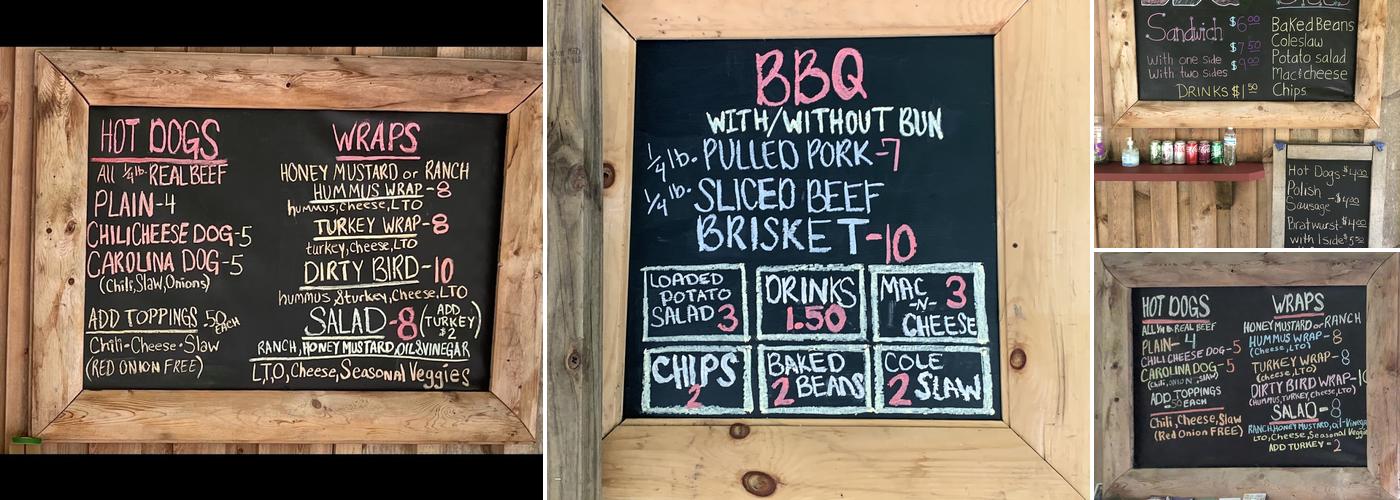 HOT DOGS
All 1/4 lb. REAL BEEF
PLAIN-4
CHILI CHEESE DOG-5
CAROLINA DOG-5
(Chili,Slaw,Onions)
ADD TOPPINGS .50 EACH
Chili-Cheese-Slaw
(RED ONION FREE)
WRAPS
HONEY MUSTARD or RANCH
HUMMUS WRAP-8
hummus,Cheese,LTO
TURKEY WRAP-8
turkey,Cheese,LTO
DIRTY BIRD-10
hummus,&turkey,Cheese,LTO
SALAD-8 (ADD TURKEY $2)
RANCH, HONEY MUSTARD, OIL&VINEGAR
LTO,Cheese,Seasonal Veggies
BBQ
WITH/WITHOUT BUN
1/4 lb. PULLED PORK-7
1/4 lb. SLICED BEEF
BRISKET-10
LOADED
POTATO
SALAD 3
DRINKS
1.50
MAC 3
-N-
CHEESE
CHIPS
2
BAKED
2 BEANS
COLE
2 SLAW
Sandwich $6.00
$7.50
With one side
With two sides $9.00
DRINKS $1.50
Baked Beans
Coleslaw
Potato salad
Mac & cheese
Chips
Hot Dogs $4.00
Polish
Sausage -$4.00
Bratwurst $4.00
with 1 side $5.50
HOT DOGS
ALL 1/4 lb REAL BEEF
PLAIN- 4
CHILI CHEESE DOG-5
CAROLINA DOG-5
(CHILI, ONION, SLAW)
ADD TOPPINGS
.50 EACH
Chili,Cheese,Slaw
(Red Onion FREE)
WRAPS
HONEY MUSTARD or RANCH
HUMMUS WRAP-8
(Cheese,LTO)
TURKEY WRAP-8
(cheese,LTO)
DIRTY BIRD WRAP-10
(HUMMUS,TURKEY,Cheese,LTO)
SALAD-8
RANCH,HONEY MUSTARD,oil-Vinegar
LTO,Cheese,Seasonal Veggie
ADD TURKEY-2